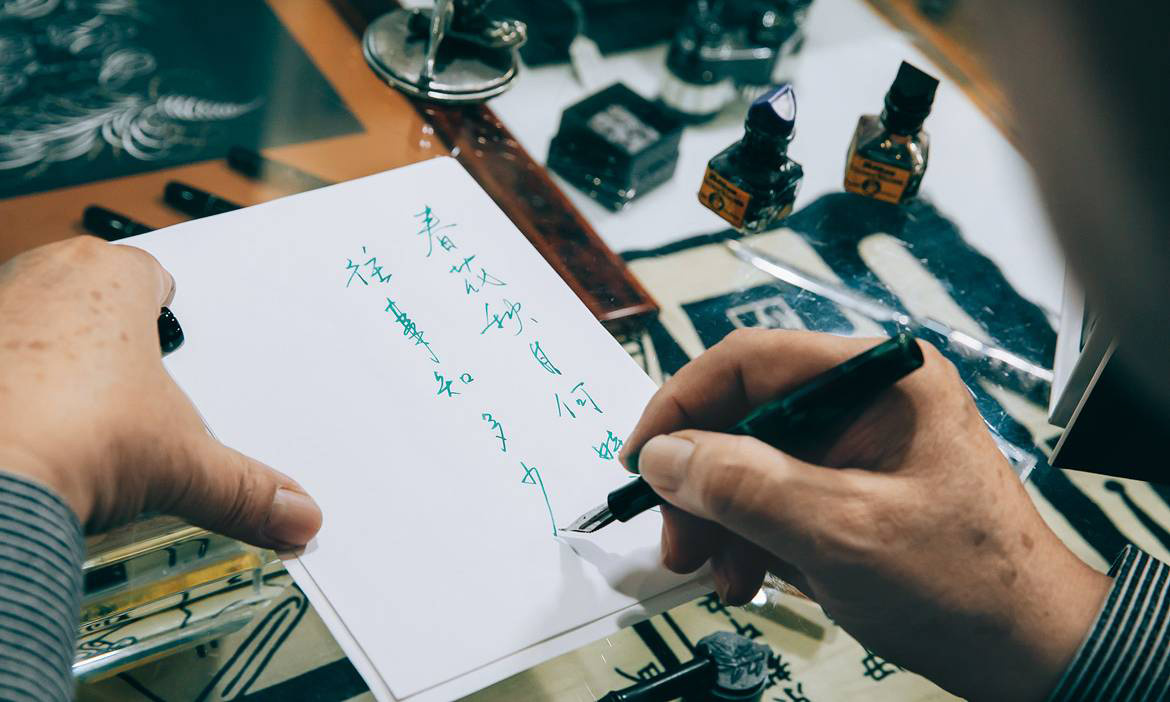 春花秋月何時
往事知多少